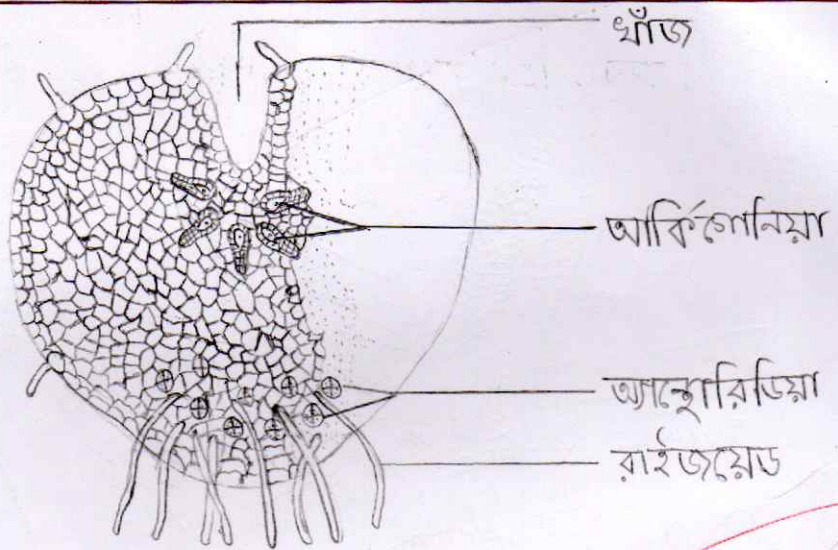 খাঁজ
আর্কিগোনিয়া
অ্যান্থেরিডিয়া
রাইজয়েড